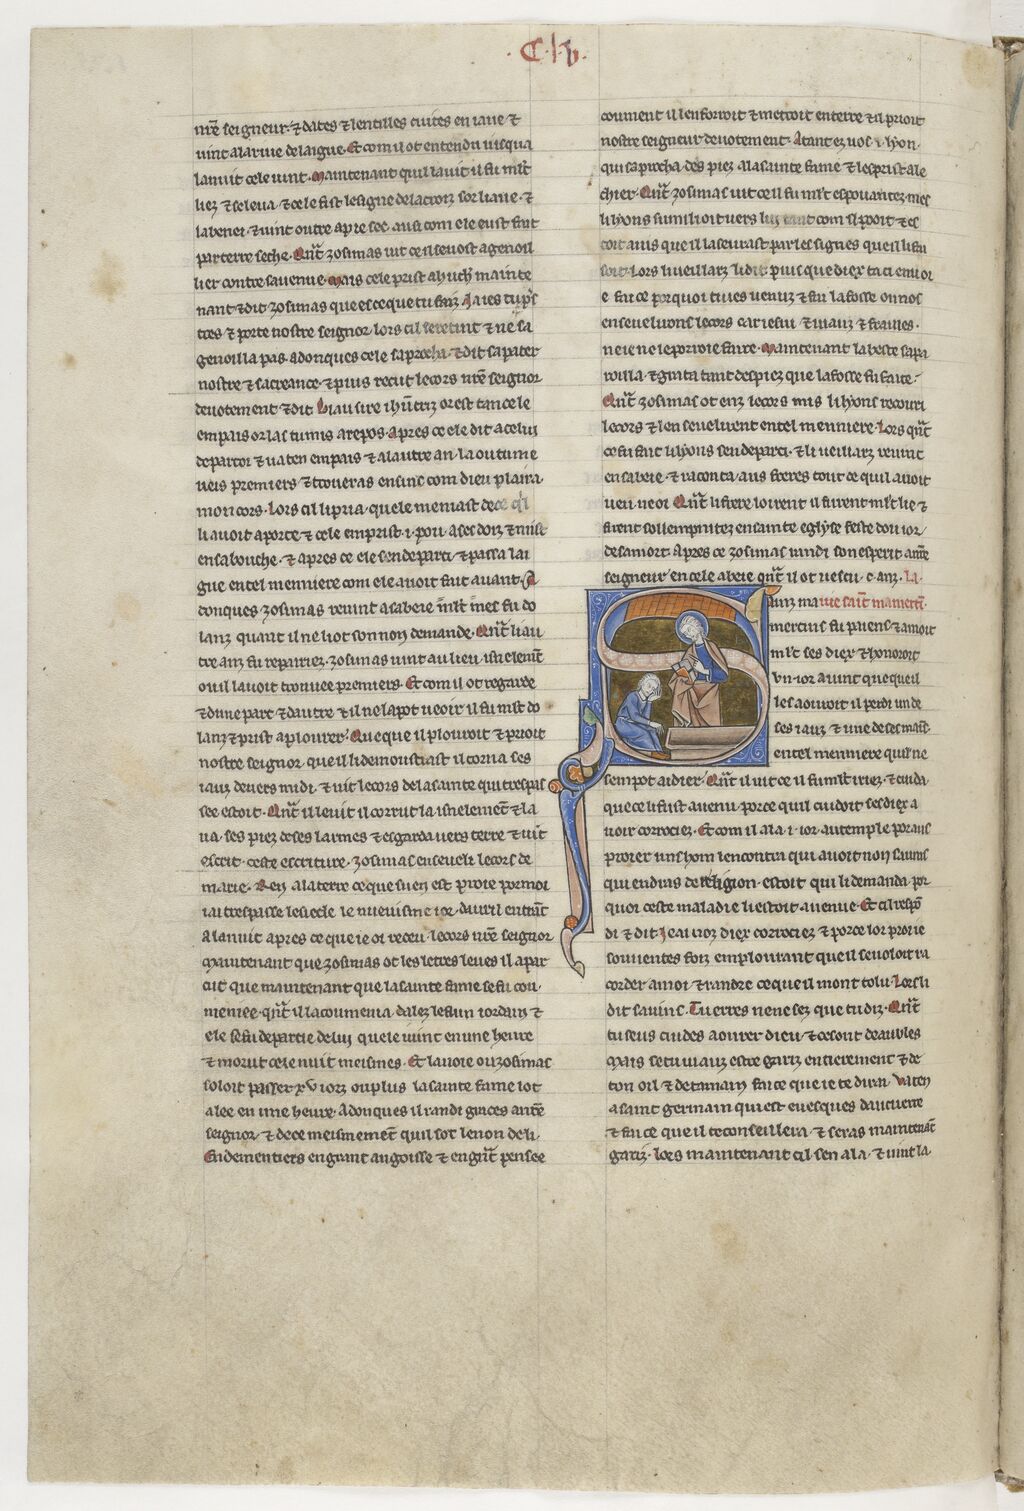 .C.l.v.
nr̃e seigneur. ⁊ dates ⁊ lentilles cuites en iaue ⁊
uint a la riue de laigue. Et com il ot entendu iusqua
la nuit cele uint. Maintenant quil la uit il fu ml̃t
liez ⁊ se leua. ⁊ cele fist le signe de la croiz sor liaue. ⁊
la benei. ⁊ uint outre apie sec. ausi com ele eust fait
par terre seche. Qñt zosimas uit ce il se uost agenoil
lier contre sa uenue. Mais cele prist a huchier mainte
nant ⁊ dit zosimas que est ce que tu faiz. Ja ies tu pr̃s
tres ⁊ porte nostre seignor. lors cil se retint ⁊ ne sa
genoilla pas. adonques cele saprocha. ⁊ dit sa pater
nostre ⁊ sa creance. ⁊ puis recut le cors nr̃e seignor
deuotement ⁊ dit. Biau sire ihũcriz or est tancele
en pais or las tu mis a repos. Apres ce ele dit a celui
departor ⁊ ua ten en pais ⁊ a lautre an la ou tu me
ueis premiers ⁊ troueras ensint com dieu plaira
mon cors. Lors cil li pria. que le meniast de ce q̃l
li auoit aporte. ⁊ cele em prist .i. pou a ses doiz ⁊ mist
en sa bouche. ⁊ apres ce ele sen departi. ⁊ passa lai
gue en tel menniere com ele auoit fait auant. A
donques zosimas reuint a sabeie ml̃t mes fu do
lanz quant il ne li ot son non demande. Qñt li au
tre anz fu repairiez. zosimas uint au lieu isnelemt̃
ou il lauoit trouuee premiers. Et com il ot regarde
⁊ dune part ⁊ dautre ⁊ il ne la pot ueoir il fu ml̃t do
lanz ⁊ prist a plourer. Que que il plouroit ⁊ prioit
nostre seignor que il li demoustrast il torna ses
iauz deuers midi. ⁊ uit le cors de la sainte qui trespas
see estoit. Qñt il le uit il corrut la isnelemẽt ⁊ la
ua. ses piez de ses larmes ⁊ esgarda uers terre ⁊ uit
escrit. ceste escriture. zosimas enseueli le cors de
marie. Ren a la terre ce que suen est proie por moi
iai trespasse le siecle le nueuisme ior. dauril entrãt
a la nuit apres ce que ie oi receu. le cors nr̃e seignor
Maintenant que zosimas ot les letres leues il aper
cut que maintenant que la sainte fame se fu con
meniee. qñt il lacoumenia. dalez le flun iordain ⁊
ele se fu departie de lui quele uint en une heure
⁊ morut cele nuit meismes. Et la uoie ou zosimas
soloit passer .xv. iorz ou plus la sainte fame lot
alee en une heure. Adonques il randi graces a nr̃e
seignor. ⁊ de ce meismemẽt quil sot le non de li.
Endementiers en grant angoisse ⁊ en grãt pensee
coument il lenforroit ⁊ metroit en terre ⁊ il prioit
nostre seigneur deuotement. Atant ez uos .i. lyon.
qui saprocha des piez a la sainte fame ⁊ les prist a le
chier. Qñt zosimas uit ce il fu ml̃t espouantez. mes
li lyons sumilioit uers lui tant com il pooit ⁊ es
toit auis que il laseurast par les signes que il li fai
soit. Lors li ueillarz li dit. puis que diex ta ci enuoi
e. fai ce por quoi tu ies uenuz ⁊ fai la fosse ou nos
enseuelirons le cors car ie sui ⁊ uiauz ⁊ frailes.
ne ie ne le porroie faire. Maintenant la beste sapa
roilla. ⁊ grata tant des piez que la fosse fu faite.
Qñt zosimas ot enz le cors mis li lyons recouri
le cors ⁊ len seuelirent en tel menniere. Lors qñt
ce fu fait li lyons sen departi. ⁊ li ueillarz reuint
en sabeie. ⁊ raconta aus freres tout ce quil auoit
ueu ne oi. Qñt li frere loirent il furent ml̃t lie ⁊
firent sollempnitez en sainte eglyse feste dou ior
de sa mort. Apres ce zosimas randi son esperit a nr̃e
seigneur en cele abeie qñt il ot uescu .c. anz. La
uie saĩt mamerti.
Aunz ma
mercius fu paiens ⁊ amoit
ml̃t ses diex ⁊ honoroit
Vn ior auint que que il
les aouroit il perdi un de
ses iauz ⁊ une de ses mais
en tel menniere quil ne
sem pot aidier. Qñt il uit ce il fu ml̃t iriez. ⁊ cuida
que ce li fust auenu. por ce quil cuidoit ses diex a
uoir corrociez. Et com il ala .i. ior au temple por aus
proier uns hom lencontra qui auoit non sauins
qui en dras de religion. estoit qui li demanda por
quoi ceste maladie li estoit auenue. Et cil respõ
di ⁊ dit. Je ai noz diex corrociez ⁊ por ce lor proie
souuentes foiz em plourant que il se uoloit ra
corder a moi ⁊ randre ce que il mont tolu. Lors li
dit sauins. Tu erres ne ne sez que tu diz. Qñt
tu seus cuides aourer dieu ⁊ ce sont deaubles
Mais se tu uiauz estre gariz entierement ⁊ de
ton oil ⁊ de ta main fai ce que ie te dirai. Va ten
a saint germain qui est euesques daucuerre
⁊ fai ce que il te conseillera. ⁊ seras maintenãt
gariz. Lors maintenant cil sen ala. ⁊ uint la